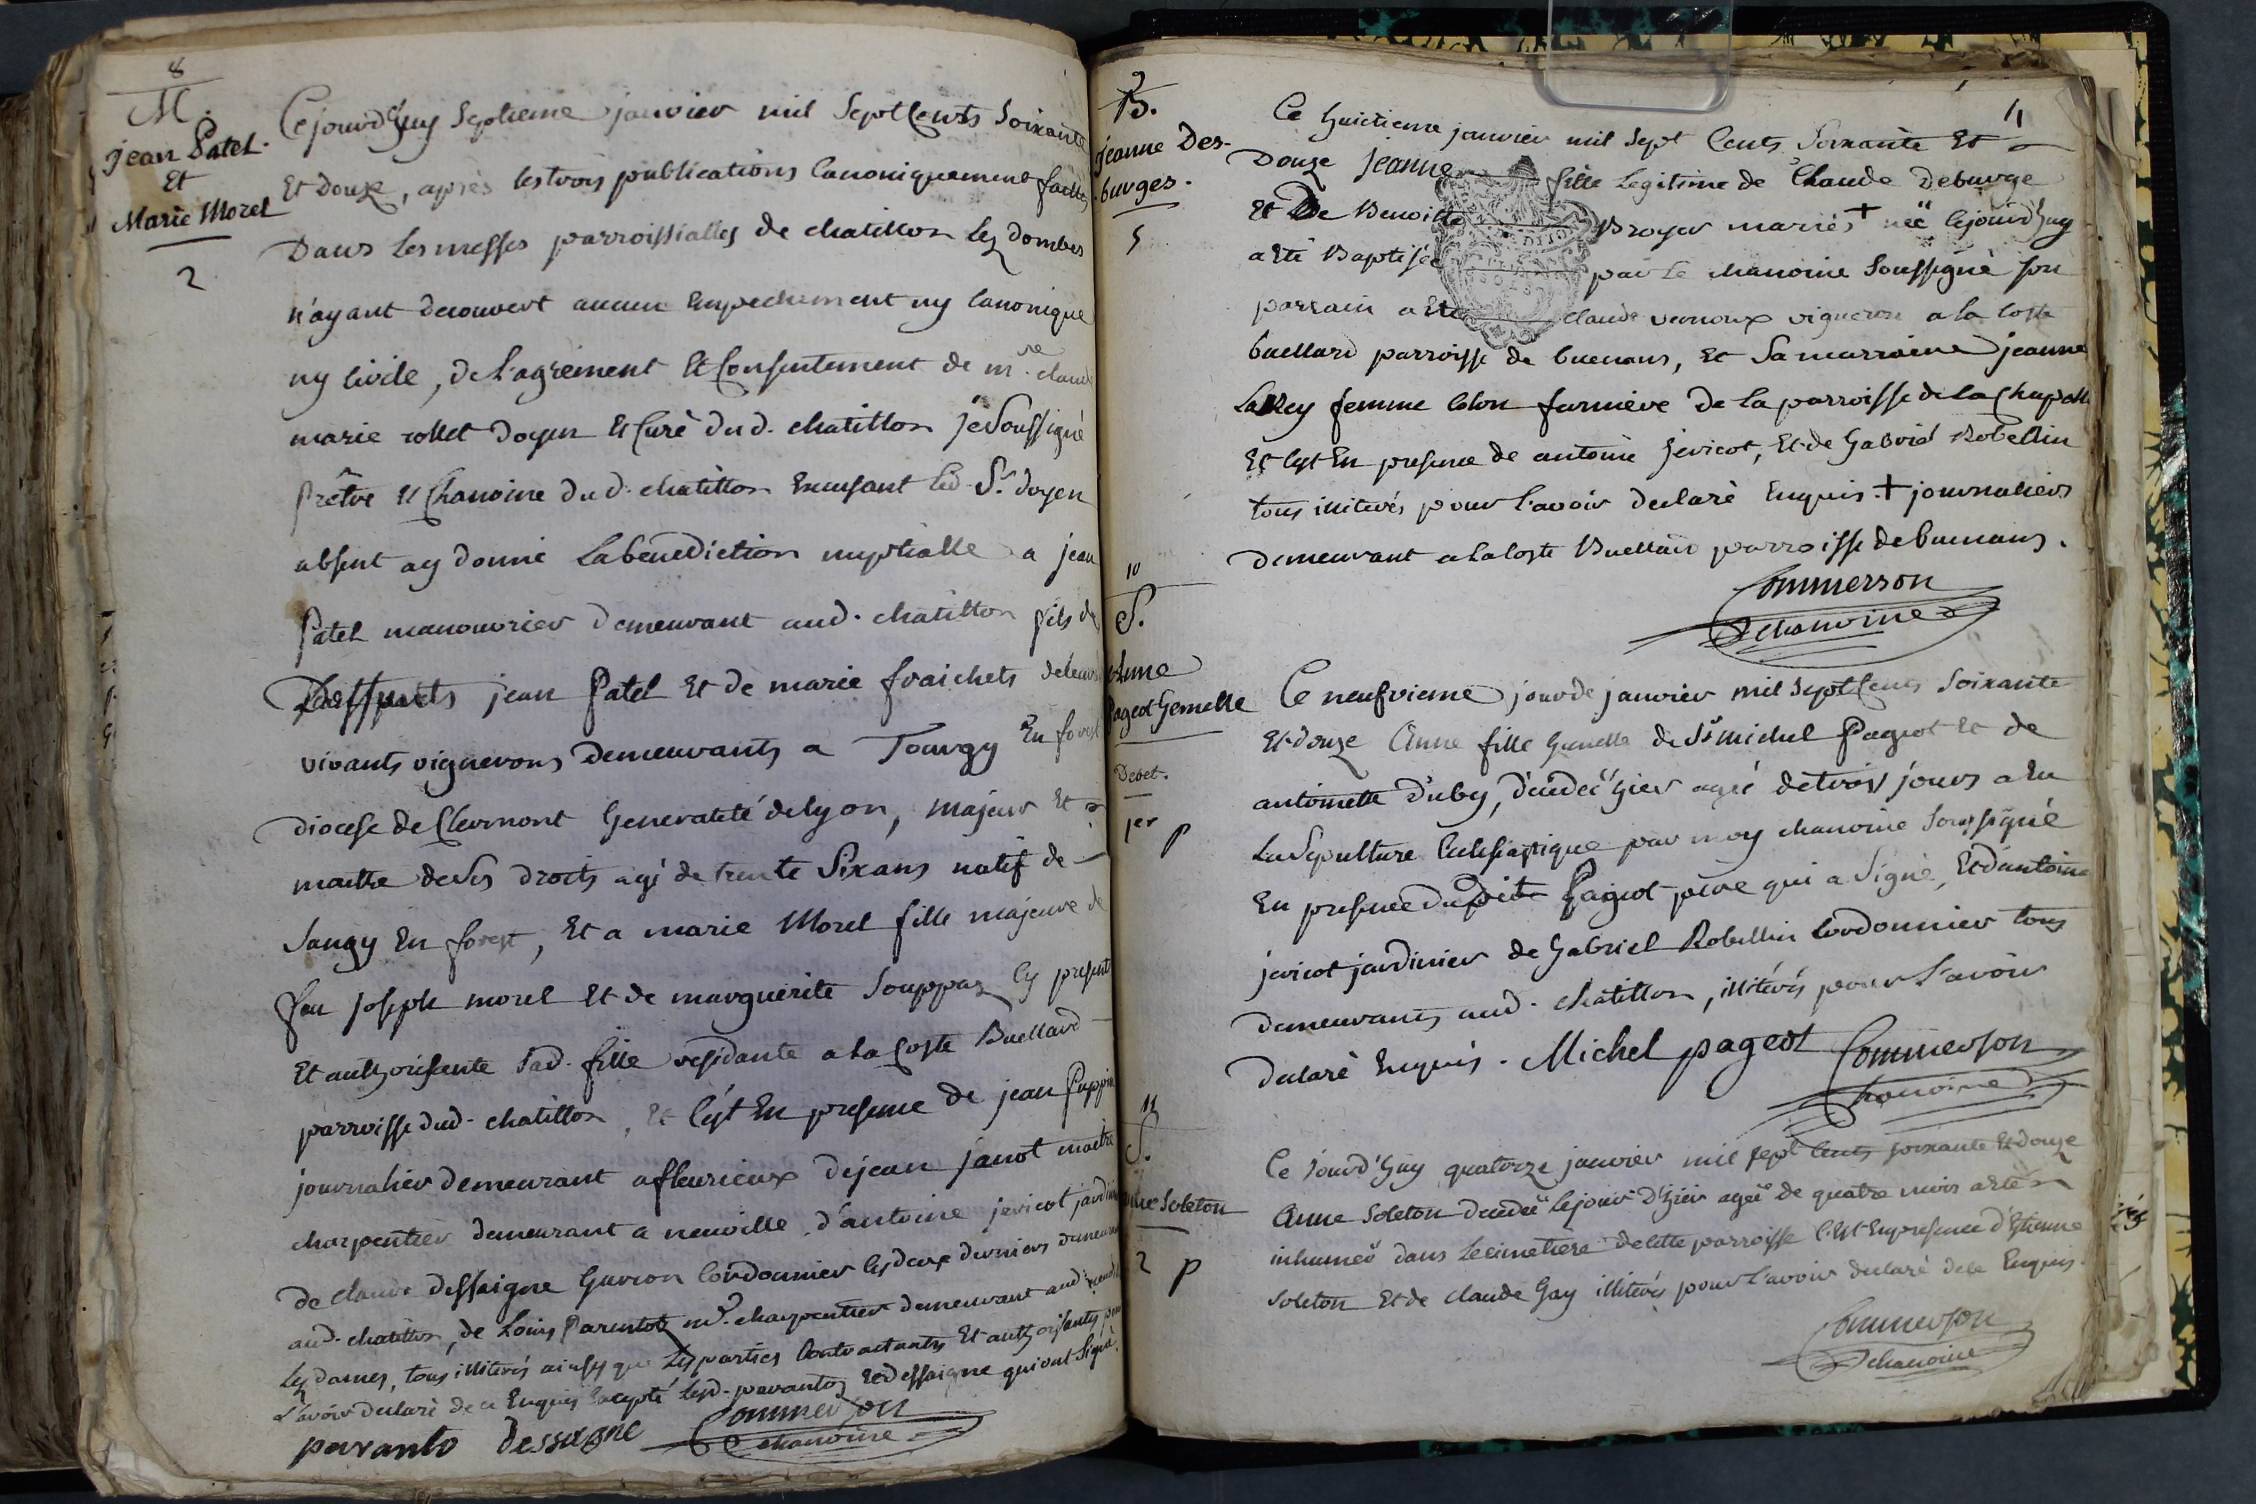 8
M.
jean Patel.
Et
Marie Morel
2
Cejourd'huy Septieme janvier mil Sept Cents Soixante
Et Douze, après les trois publications Canoniquement faittes
Dans Les messes parroissialles de chatillon Lez dombes
n'ayant decouvert aucun Empechement ny Canonique
ny Civile, de L'agrement Et Consentement de mre. claude
marie rollet Doyen Et Curé dud. chatillon je Soussigné
prêtre Et Chanoine dud. chatillon Excusant Led. Sr. doyen
absent ay donné La benediction nuptialle a jean
Patel manouvrier demeurant aud. chatillon fils de
Deffunts jean Patel Et de marie fraichets de leurs
vivants vignerons Demeurants a Tourgy En forest
diocese de Clermont Generalité de lyon, majeur Et
maitre de Ses droits agé de trente Six ans natif de
Sougy En forest, Et a marie Morel fille majeure de
feu joseph morel Et de marguerite Souppaz Cy presente
Et authorisante Sad. fille residante a la Coste Buellard
parroisse dud. chatillon, Et C'est En presence de jean Puppin
journalier demeurant a fleurieux de jean janot maitre
charpentier demeurant a neuville, d'antoine jericot jardinier
de claude dessaigne Garcon Cordonnier les deux derniers demeurants
aud. chatillon, de Louis Parentot me. charpentier demeurant aud.
Lez dames, tous illiterés ainsy que Les parties Contractantes Et authorisante pour
L'avoir declaré de ce Enquis Excepté Lesd. parantoz Et dessaigne qui ont Signé.
paranto dessagne Commerson
chanoine
9
B.
jeanne Des-
burges.
5
11
Ce huitieme janvier mil Sept Cents Soixante Et
Douze jeanne fille Legitime de Claude Deburge
Et De Benoitte Broyer mariés + née Cejourd'huy
a Eté Baptisée par Le chanoine Soussigné Son
parrain a Eté claude vernoux vigneron a la Coste
buellard parroisse de buenans, Et Sa marraine jeanne
Larey femme Colon fermière de La parroisse de La Chapelle
Et C'est En presence de antoine jericot, Et de Gabriel Robellin
tous illiterés pour L'avoir declaré Enquis. + journaliers
demeurant a La Coste Buellard parroisse de buenans.
Commerson
chanoine
10
S.
Anne
Pageot Gemelle
Decet.
1er
p
Ce neufvieme jour de janvier mil Sept Cents Soixante
Et douze Anne fille Gemelle de Sr michel Pageot Et de
antoinette Duby, decedée hier agée de trois jours a Eu
La Sepulture Eclesiastique par moy chanoine Soussigné
En presence dudit Pageot père qui a Signé, Et d'antoine
jericot jardinier de Gabriel Robellin Cordonnier tous
demeurants aud. chatillon, illiterés pour L'avoir
declaré Enquis. Michel pageot Commerson
chanoine
11
S.
Anne Soleton
2
p
Ce jourd'huy quatorze janvier mil Sept Cents Soixante Et douze
Anne Soleton decedée Le jour d'hier agée de quatre mois a eté
inhumée dans Le cimetiere de Cette parroisse C'Est En presence d'Etienne
Soleton Et de claude Gay illiterés pour L'avoir declaré de Ce Enquis.
Commerson
chanoine